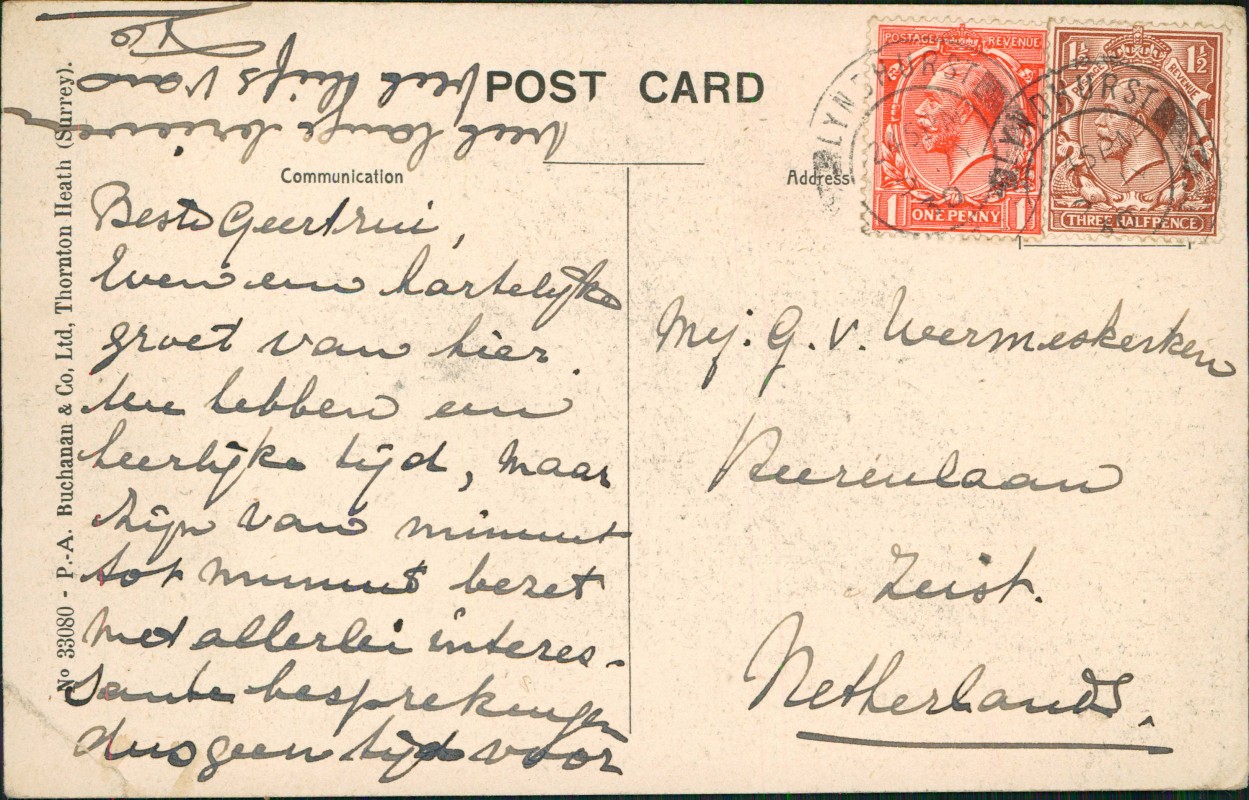 POST CARD
Communication
Address
Beste Geertrui,
Even een hartelijke
groet van hier.
We hebben een
heerlijke tijd, maar
zijn van minuut
tot minuut bezet
met allerlei interes-
sante besprekingen
dus geen tijd voor
veel lange brieven
veel liefs van
Mej. G. v. Wermeskerken
Beerenlaan
Zeist.
Netherlands.
No 33080 - P.-A. Buchanan & Co, Ltd, Thornton Heath (Surrey).
POSTAGE REVENUE
1 ONE PENNY 1
1½ 1½
POSTAGE REVENUE
THREE HALFPENCE
LYNDHURST
LYNDHURST